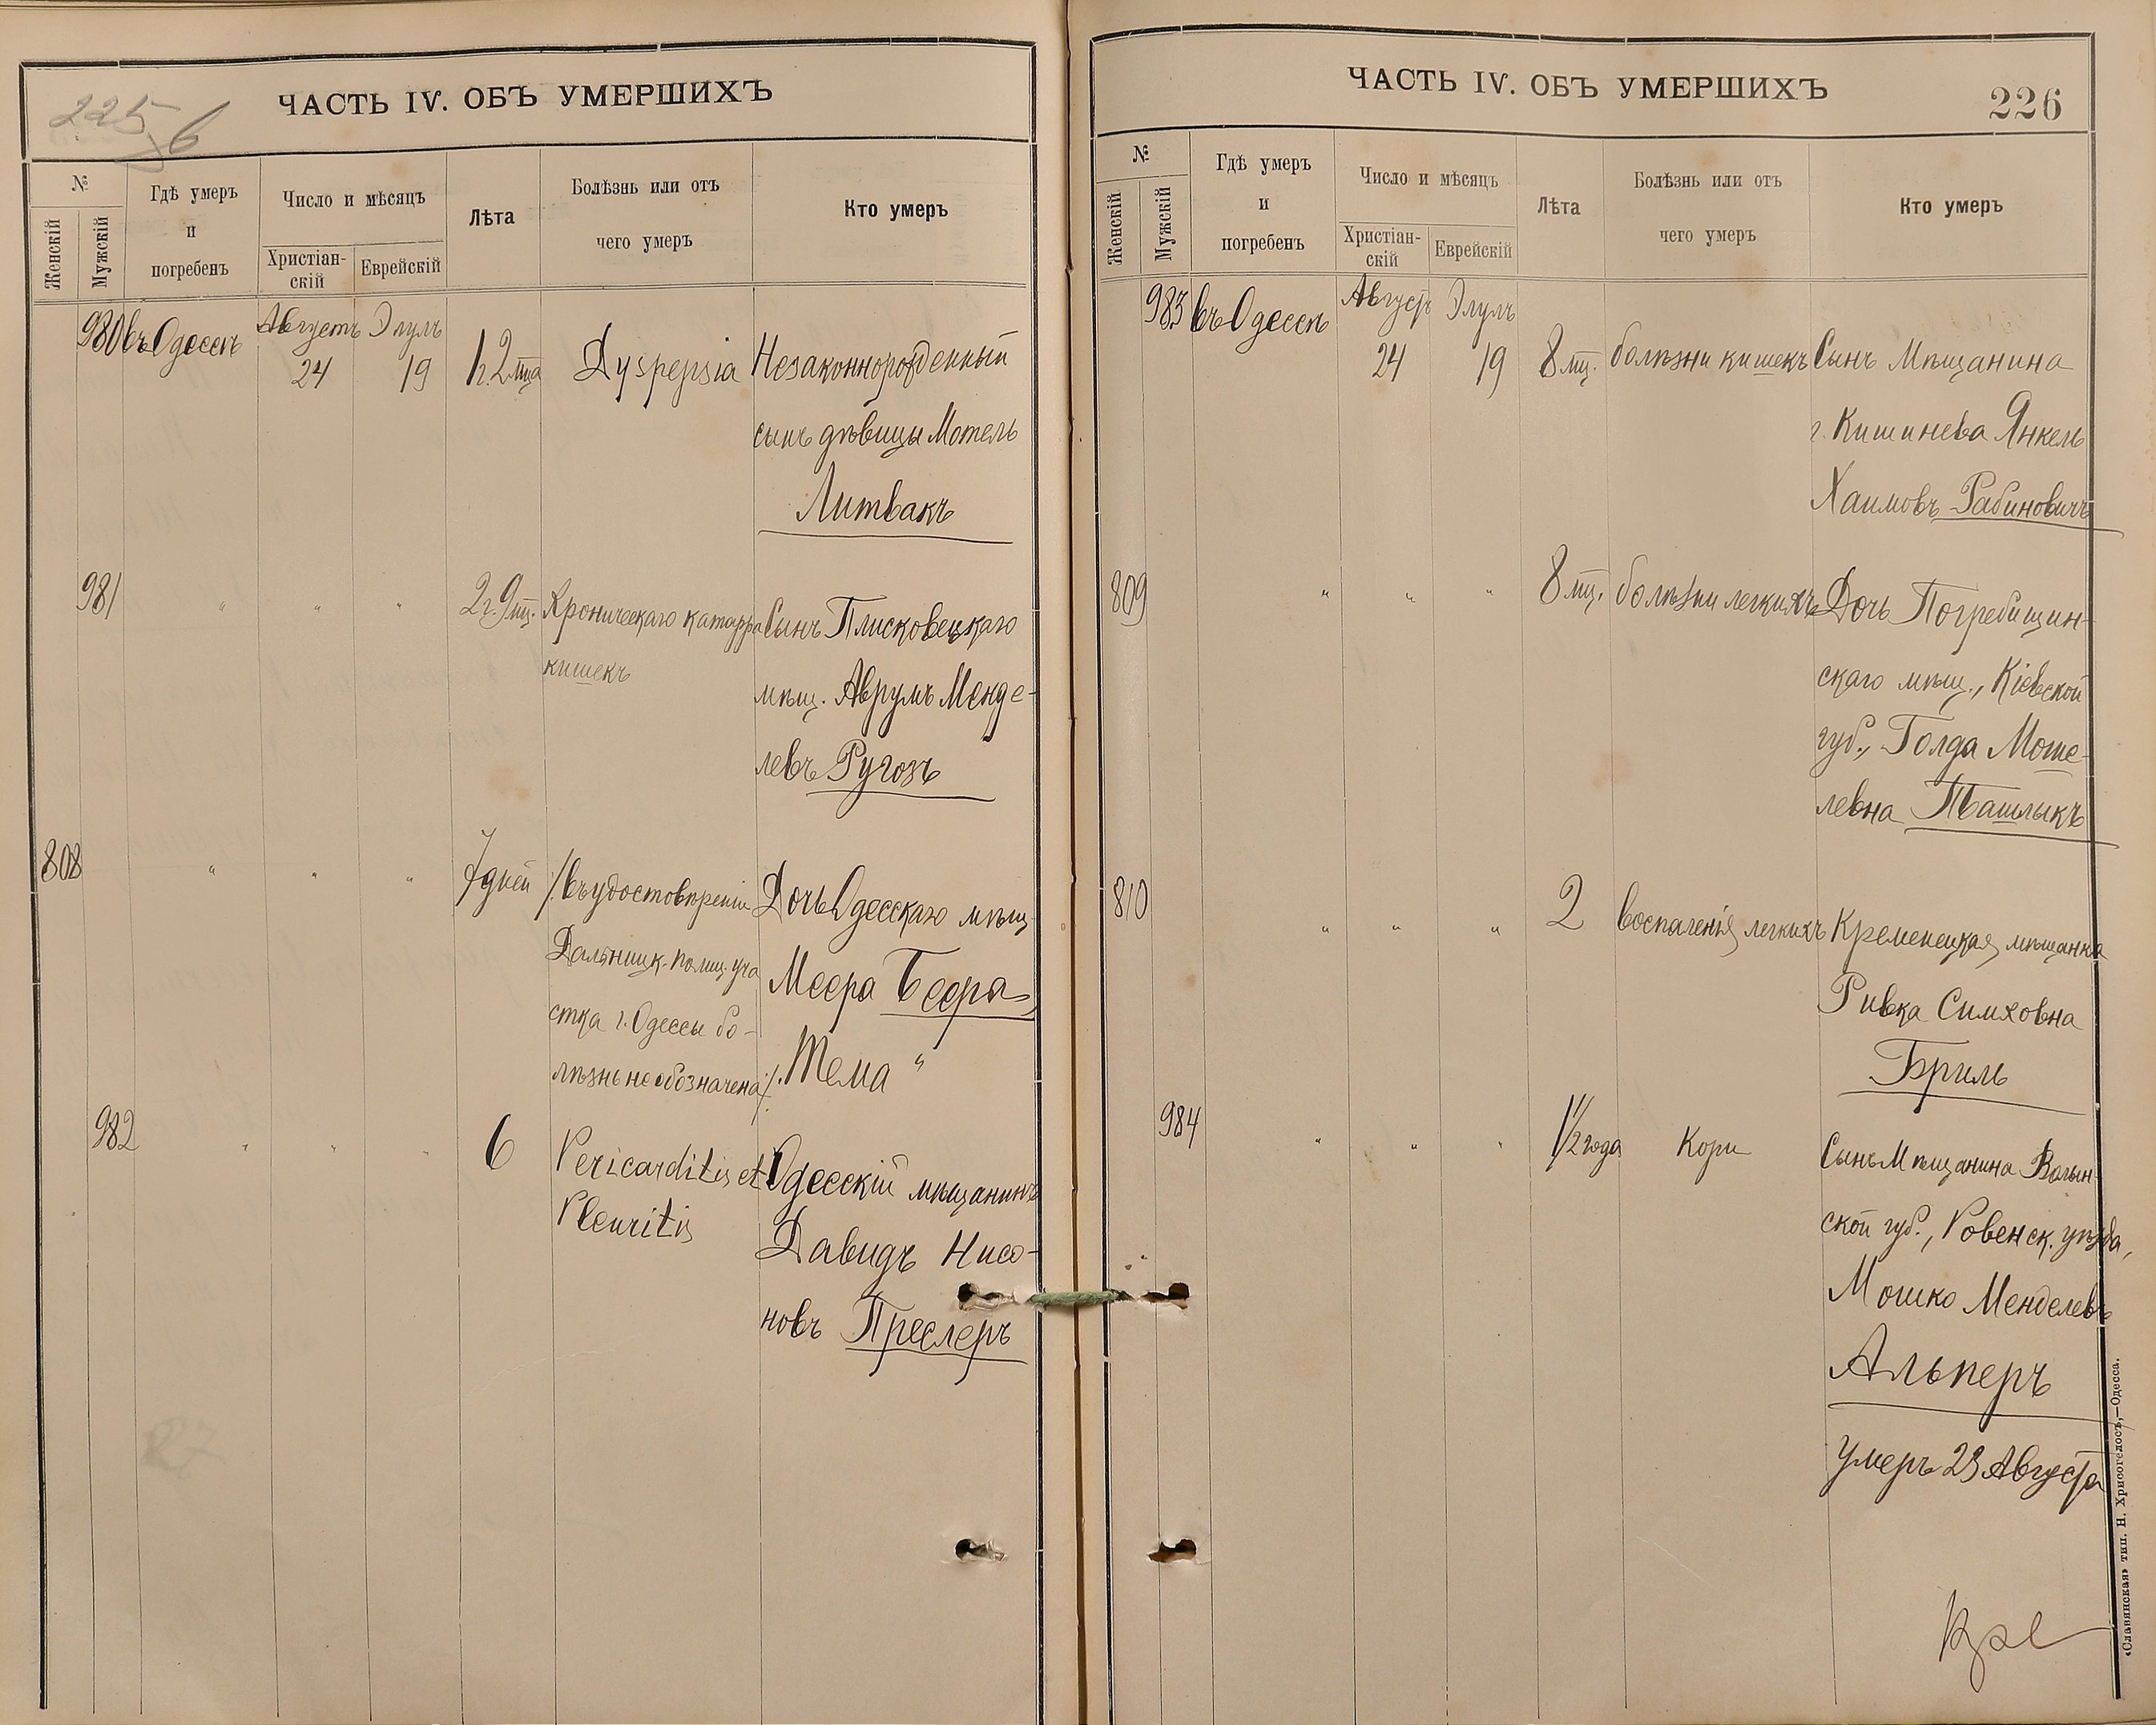 225
б
ЧАСТЬ IV. ОБЪ УМЕРШИХЪ
№
Женскій
Мужскій
Гдѣ умеръ
и
погребенъ
Число и мѣсяцъ
Христіан-
скій
Еврейскій
Лѣта
Болѣзнь или отъ
чего умеръ
Кто умеръ
980 въ Одессѣ Августъ 24 Элулъ 19 1 г. 2 мца Dyspepsia Незаконнорожденный
сынъ дѣвицы Мотель
Литвакъ
981 " " " 2 г. 9 мц. Хроническаго катарра Сынъ Плисковецкаго
кишекъ
мѣщ. Аврумъ Менде-
левъ Ругозъ
808 " " " 7 дней /. въ удостовѣреніи Дочь Одесскаго мѣщ.
Дальницк. полиц. уча
Меера Беера
стка г. Одессы бо-
Тема "
лѣзнь не обозначена /.
982 " " " 6 Pericarditis et Одесскій мѣщанинъ
Pleuritis
Давидъ Нисо-
новъ Преслеръ
ЧАСТЬ IV. ОБЪ УМЕРШИХЪ
226
№
Женскій
Мужскій
Гдѣ умеръ
и
погребенъ
Число и мѣсяцъ
Христіан-
скій
Еврейскій
Лѣта
Болѣзнь или отъ
чего умеръ
Кто умеръ
983 въ Одессѣ Августъ 24 Элулъ 19 8 мц. болѣзни кишекъ Сынъ Мѣщанина
г. Кишинева Янкель
Хаимовъ Рабиновичъ
809 " " " 8 мц. болѣзни легкихъ Дочь Погребищин-
скаго мѣщ., Кіевской
губ., Голда Моше-
левна Ташлыкъ
810 " " " 2 воспаленія легкихъ Кременецкая мѣщанка
Ривка Симховна
Бриль
984 " " " 1/2 года Кори Сынъ Мѣщанина Волын
ской губ., Ровенск. уѣзда,
Мошко Менделевъ
Альперъ
умеръ 23 Августа
«Славянская» тип. Н. Хрисогелосъ,—Одесса.